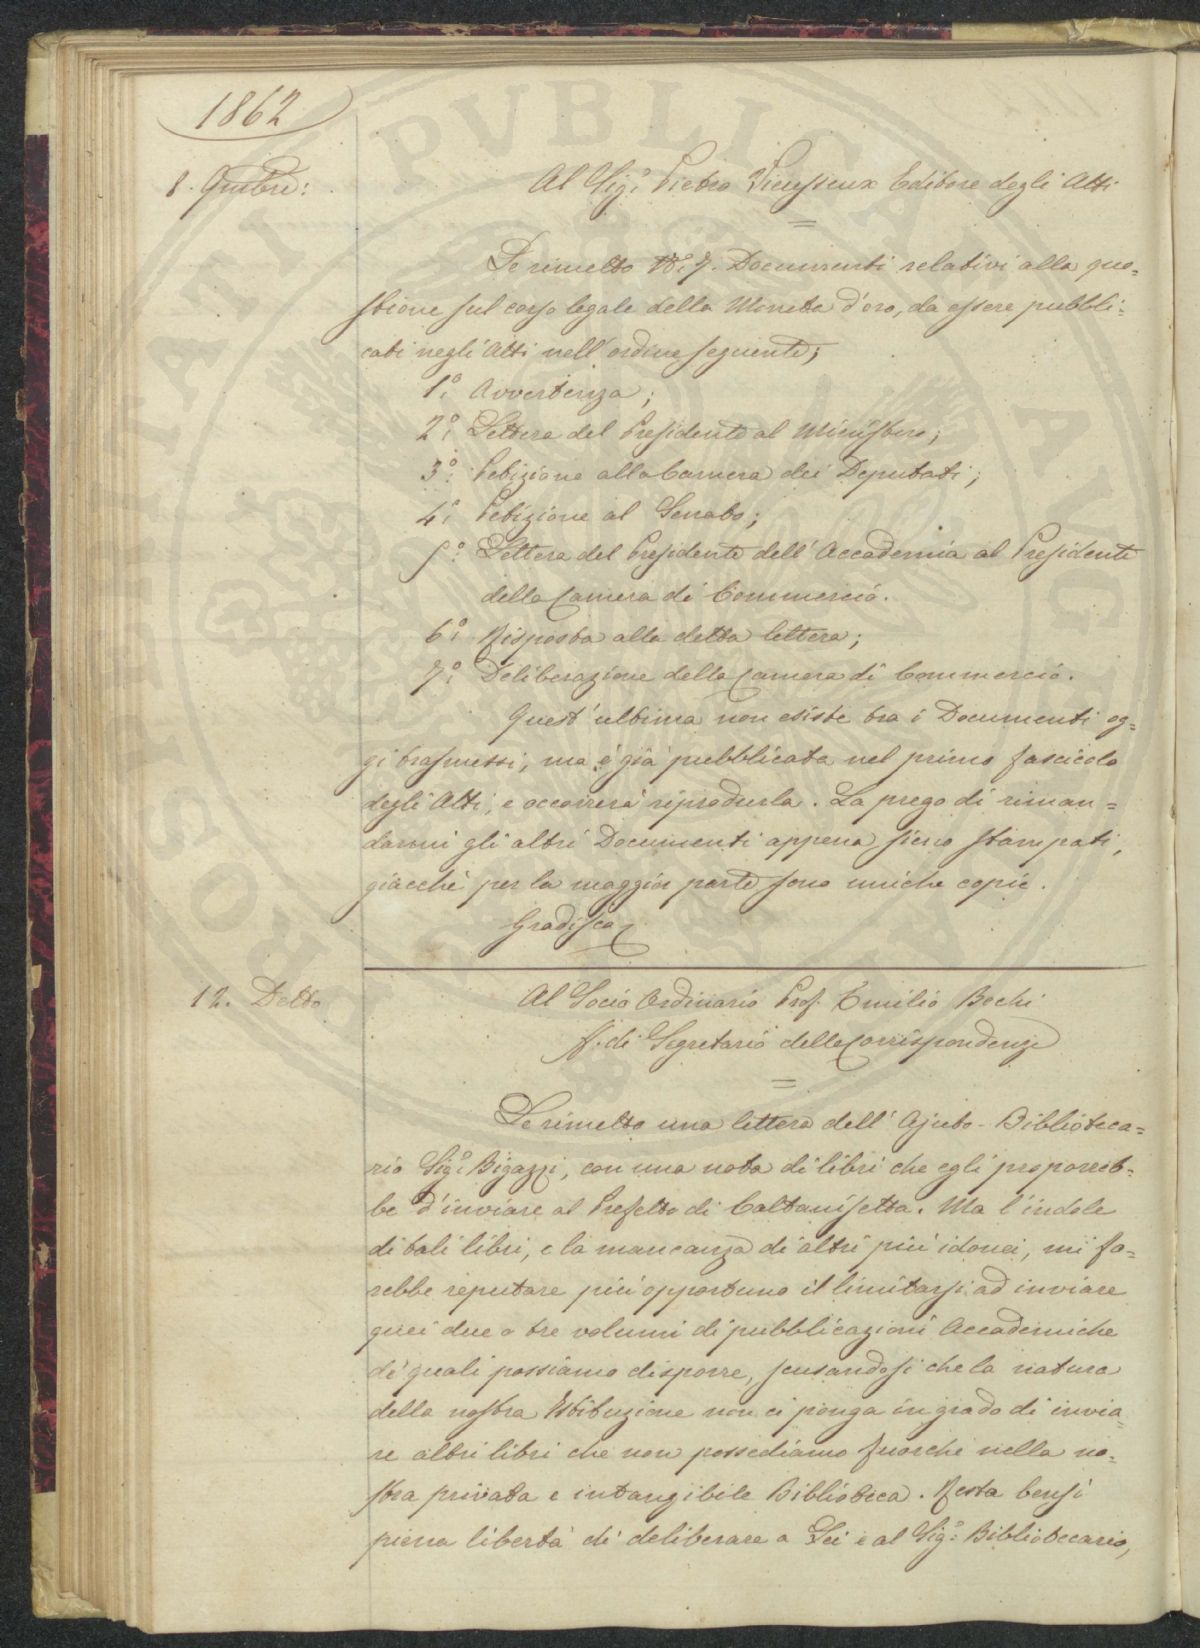 1862
Al Sig.r Pietro Vieusseux Editore degli Atti
Le rimetto N.i 7. Documenti relativi alla que=
stione sul corso legale della Moneta d'oro, da essere pubbli=
cati negli Atti nell'ordine seguente;
1.o Avvertenza;
2.o Lettera del Presidente al Ministero;
3.o Petizione alla Camera dei Deputati;
4.o Petizione al Senato;
5.o Lettera del Presidente dell'Accademia al Presidente
della Camera di Commercio.
6.o Risposta alla detta lettera;
7.o Deliberazione della Camera di Commercio.
Quest'ultima non esiste tra i Documenti og=
gi trasmessi, ma è già pubblicata nel primo fascicolo
degli Atti, e occorrerà riprodurla. La prego di riman=
darmi gli altri Documenti appena sieno stampati,
giacchè per la maggior parte sono uniche copie.
Gradisca
12. Detto
Al Socio Ordinario Prof. Emilio Bechi
ff. di Segretario delle Corrispondenze
Le rimetto una lettera dell'Ajuto-Biblioteca=
rio Sig.r Bigazzi, con una nota di libri che egli proporreb=
be d'inviare al Prefetto di Caltanisetta. Ma l'indole
di tali libri, e la mancanza di altri più idonei, mi fa=
rebbe reputare più opportuno il limitarsi ad inviare
quei due o tre volumi di pubblicazioni Accademiche
di quali possiamo disporre, scusandosi che la natura
della nostra Istituzione non ci ponga in grado di invia=
re altri libri che non possediamo fuorchè nella no=
stra privata e intangibile Biblioteca. Resta bensì
piena libertà di deliberare a Lei e al Sig.r Bibliotecario,